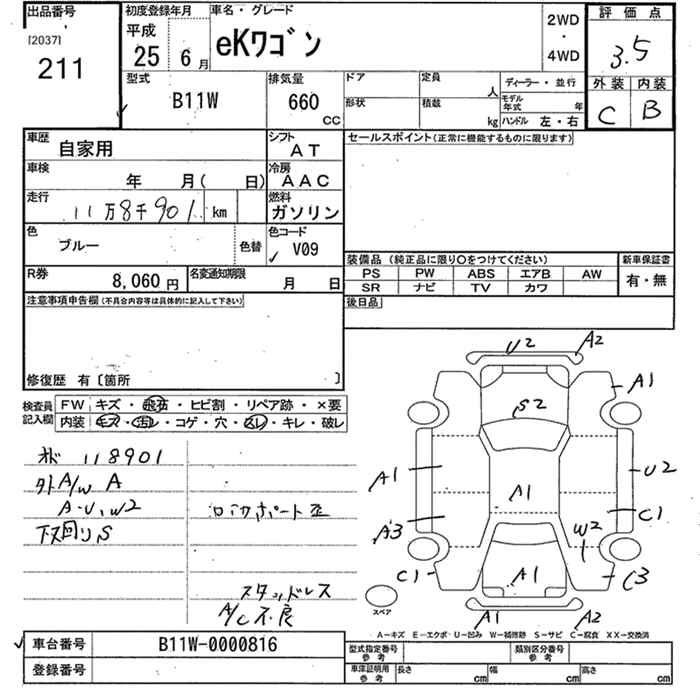 出品番号
[2037]
211
初度登録年月
平成
25 6月
車名・グレード
eKワゴン
2WD
・
4WD
評価点
3.5
外装 内装
C B
型式
B11W
排気量
660
CC
ドア
形状
定員
人
積載
kg
ディーラー・並行
モデル年式 年
ハンドル 左・右
車歴
自家用
シフト
AT
車検
年 月( 日)
冷房
AAC
走行
11万8千901 km
燃料
ガソリン
色
ブルー
色替
色コード
V09
R券
8,060 円
名変通知期限
月 日
セールスポイント(正常に機能するものに限ります)
装備品(純正品に限り○をつけてください)
PS PW ABS エアB AW
SR ナビ TV カワ
新車保証書
有・無
後日品
注意事項申告欄(不具合内容等は具体的に記入して下さい)
修復歴 有〔箇所 〕
検査員記入欄
FW キズ・飛石・ヒビ割・リペア跡・×要
内装 キズ・汚レ・コゲ・穴・スレ・キレ・破レ
オド 118901
外A/W A
A・U、W2
下回りS
ロアサポート歪
スタッドレス
A/C不良
U2 A2
A1
S2
A1
U2
A1
A3
C1
W2
C1
A1
C3
A1 A2
スペア
A−キズ E−エクボ・U−凹み W−補修跡 S−サビ C−腐食 XX−交換済
車台番号
B11W-0000816
登録番号
型式指定番号
参考
類別区分番号
参考
車庫証明用
参考
長さ cm
幅 cm
高さ cm